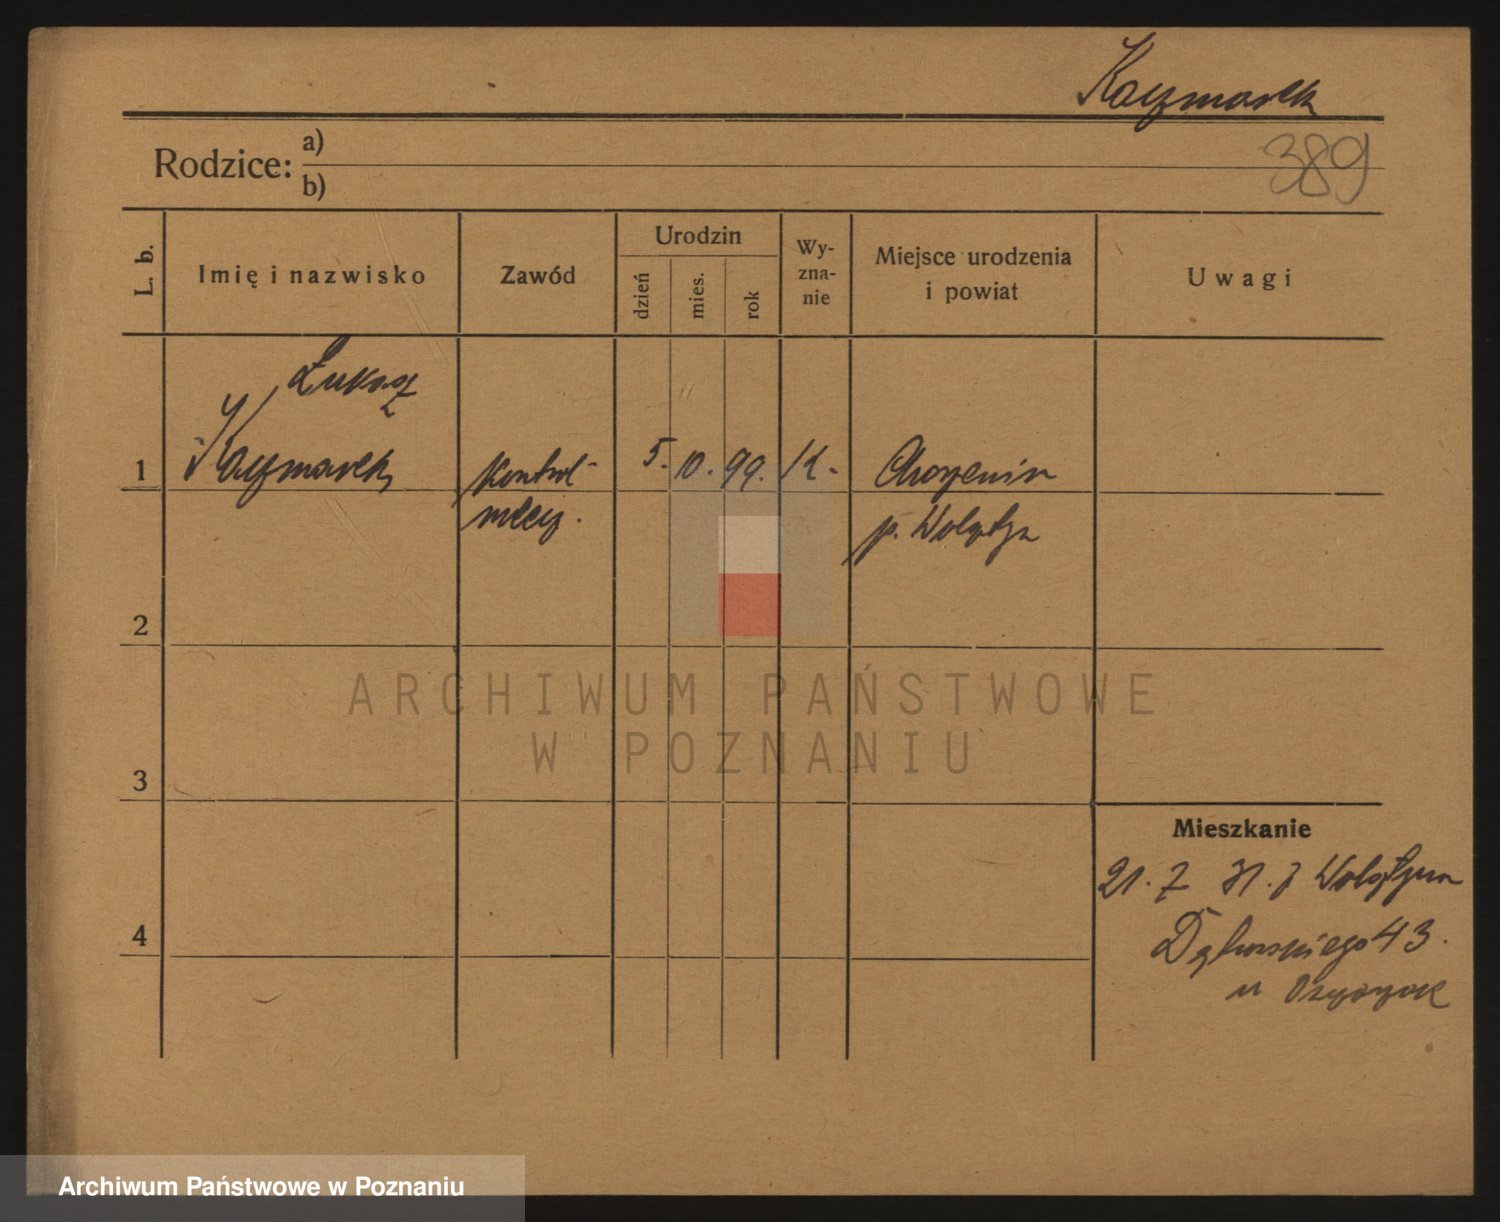 Kaczmarek
389
Rodzice: a)
b)
L. b.
Imię i nazwisko
Zawód
Urodzin
dzień
mies.
rok
Wy-
zna-
nie
Miejsce urodzenia
i powiat
Uwagi
Łukasz
1 Kaczmarek 5. 10. 99.
p. Wolsztyn
2
ARCHIWUM PAŃSTWOWE
W POZNANIU
3
Mieszkanie
21. 7 31. z Wolsztyna
4 Dąbrowskiego 43.
u
Archiwum Państwowe w Poznaniu